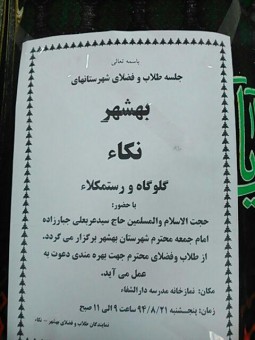 باسمه تعالی
جلسه طلاب و فضلای شهرستانهای
بهشهر
نکاء
گلوگاه و رستمکلاء
با حضور:
حجت الاسلام والمسلمین حاج سیدعربعلی جبارزاده
امام جمعه محترم شهرستان بهشهر برگزار می گردد.
از طلاب وفضلای محترم جهت بهره مندی دعوت به
عمل می آید.
مکان: نمازخانه مدرسه دارالشفاء
زمان: پنجشنبه ۹۴/۸/۲۱ ساعت ۹ الی ۱۱ صبح
نمایندگان طلاب و فضلای بهشهر - نکاء